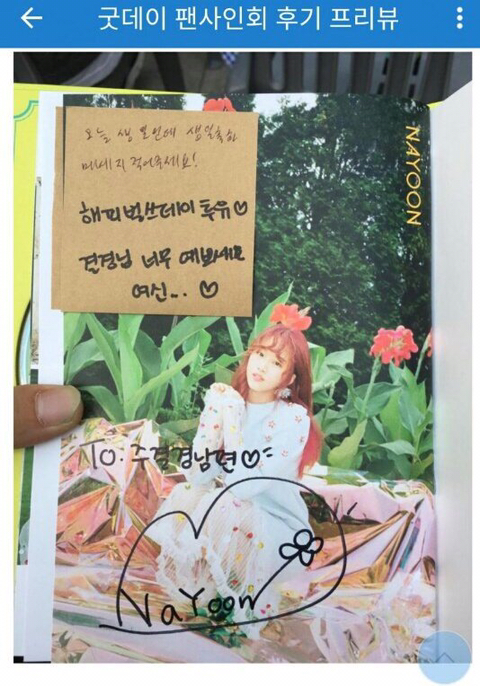 굿데이 팬사인회 후기 프리뷰
NAYOON
오늘 생일인데 생일축하
메세지 적어주세요!
해피벌쓰데이 투유♡
결경님 너무 예쁘세요
여신... ♡
To. 주결경남편♡
NaYoon